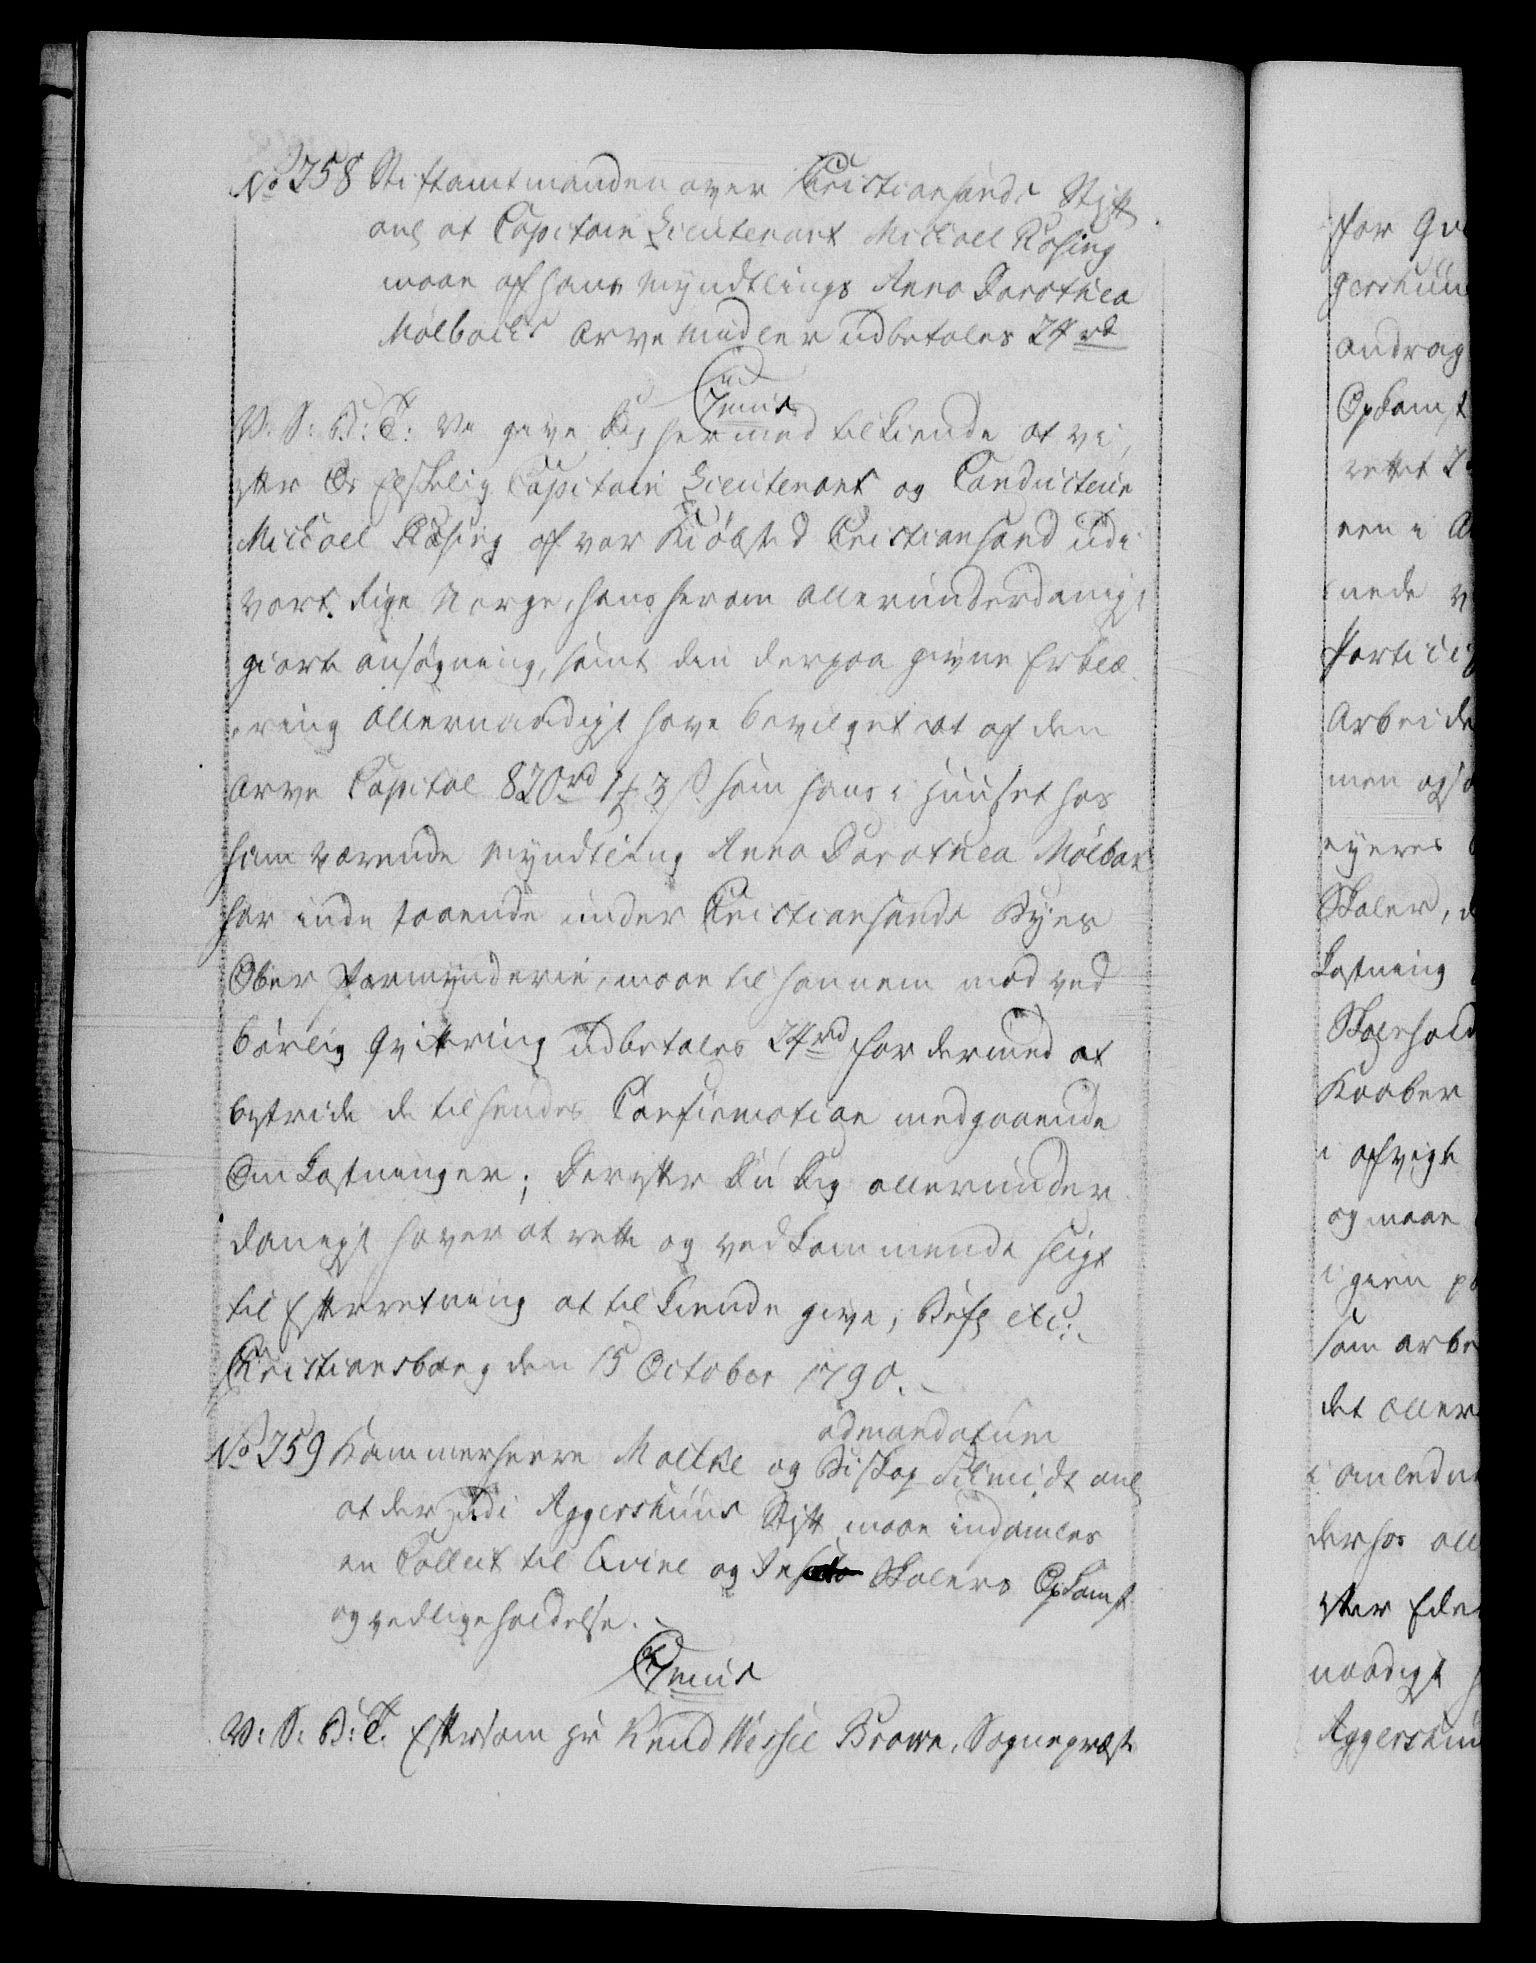 No 258 Stiftamtmanden over Christiansands Stift
anl at Capitain Lieutenant Michael Rosing
maae af hans Myndtlings Anna Dorothea
Mølbachs Arve Midler udbetales 24 rd
C 7mus
V. S. G. T: Vi give dig hermed tilkiende at vi,
efter Os Elskelig Capitain Lieutenant og Conducteur
Michael Rosing af vor Kiøbsted Christiansand udi
vort Rige Norge, hans herom allerunderdanigst
giorte ansøgning, samt din derpaa givne Erklæ
ring allernaadigst have bevilget at af den
Arve Capital 820 rd 1 ƒ 3 s som hans i Huuset hos
ham værende Myndtling Anna Dorothea Mølbak
har inde staaende under Christiansands Byes
Ober Formynderie, maae til hannem mod ved
børlig Qvittering udbetales 24 rd for dermed at
bestride de til hendes Confirmation medgaaende
Omkostninger; Derefter Du Dig allerunder
danigst haver at rette og vedkommende sligt
til Efterretning at tilkiende give, Befl etc:
Christiansborg den 15 October 1790.
admandatum
No 259 Kammerherre Moltke og Biskop Schmidt anl
at der udi Aggershuus Stift maae indsamles
en Collect til Qvine og Skolers Opkomst
og vedligeholdelse.
C 7mus
V: S: G: T. Eftersom Hr Knud Wessel Brown, Sognepræst
for
gershuus
andrag
Opkomst
rettet
een i
nede
Partici
Arbeide
men ogsaa
eyeres
Skoler,
kostning
Skolehold
Kaaber
i afvigt
og maae
i gien
som arbe
det aller
i anledn
derhos all
ster Eder
naadigst
Aggershuu